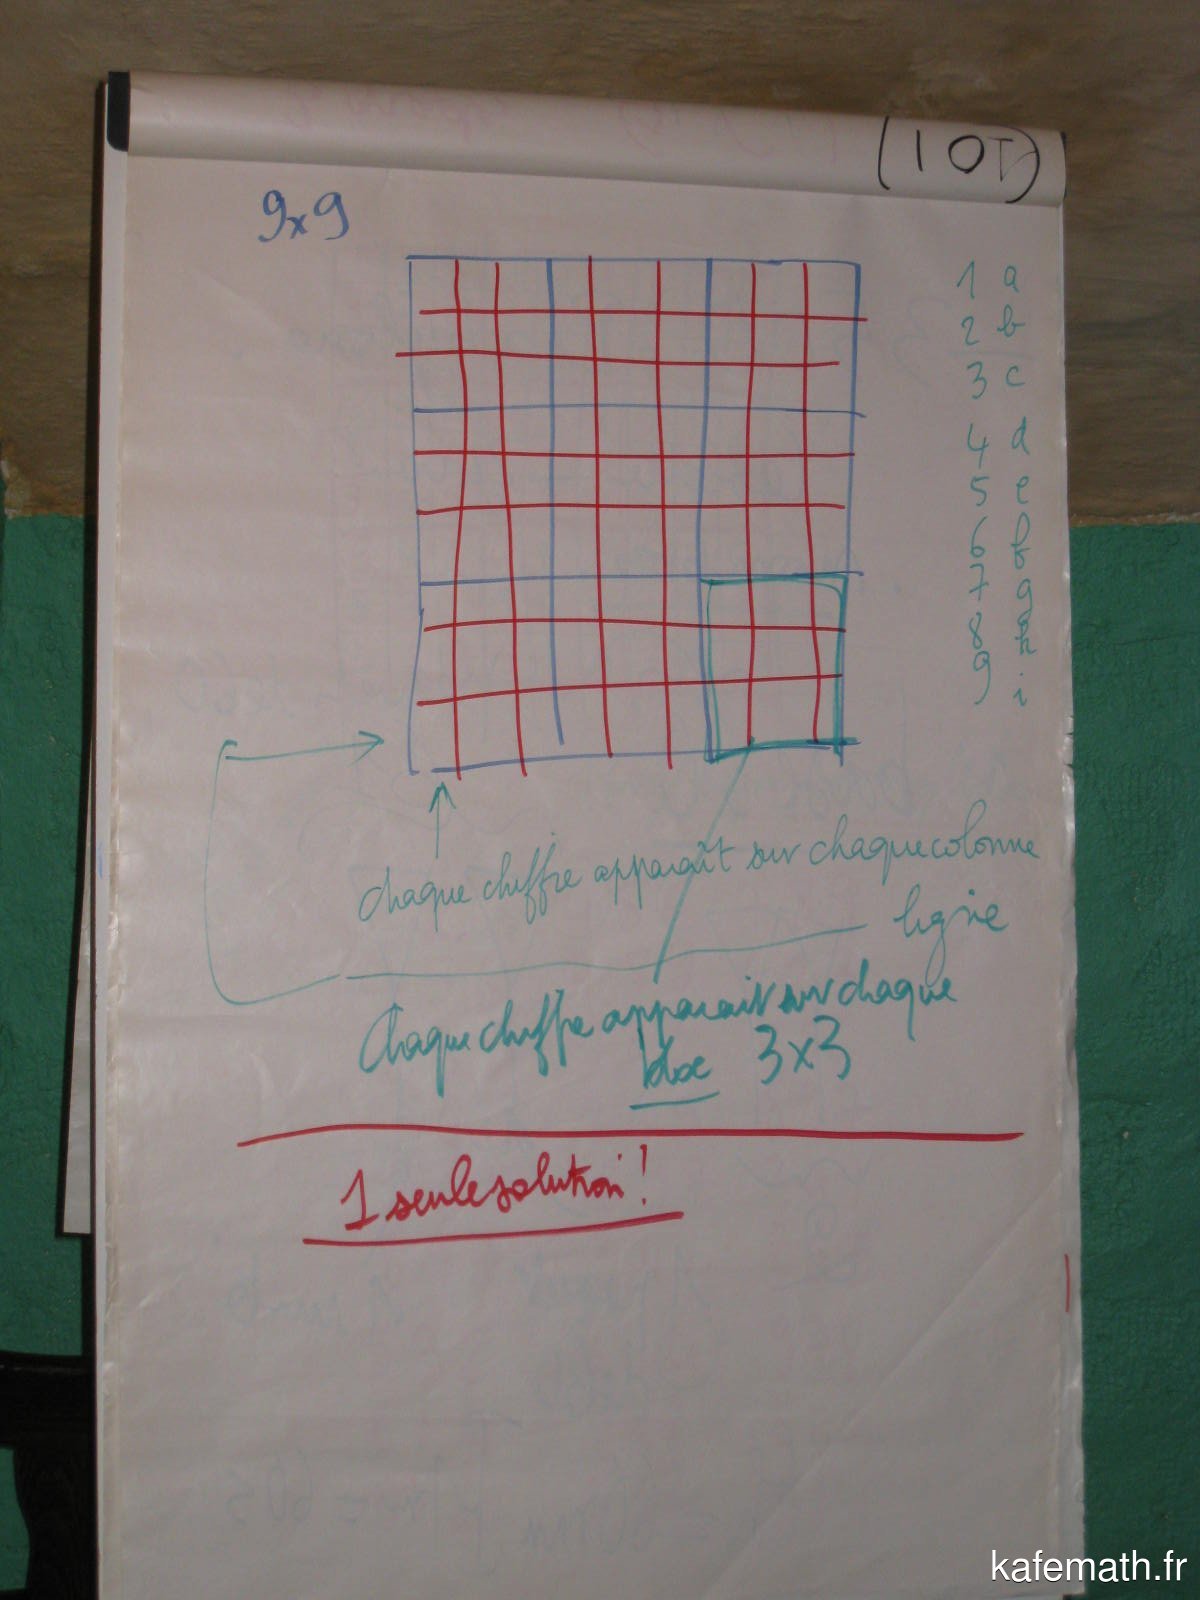 9x9
1 a
2 b
3 c
4 d
5 e
6 f
7 g
8 h
9 i
chaque chiffre apparaît sur chaque colonne
ligne
chaque chiffre apparait sur chaque
bloc 3x3
1 seule solution !
kafemath.fr